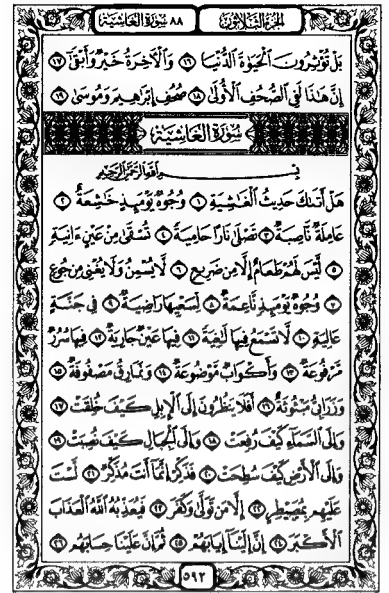 الجزء الثلاثون
٨٨ سورة الغاشية
بَلْ تُؤْثِرُونَ ٱلْحَيَوٰةَ ٱلدُّنْيَا ١٦ وَٱلْآخِرَةُ خَيْرٌ وَأَبْقَىٰٓ ١٧
إِنَّ هَٰذَا لَفِى ٱلصُّحُفِ ٱلْأُولَىٰ ١٨ صُحُفِ إِبْرَٰهِيمَ وَمُوسَىٰ ١٩
سُورَةُ الغَاشِيَةِ
بِسْمِ ٱللَّهِ ٱلرَّحْمَٰنِ ٱلرَّحِيمِ
هَلْ أَتَىٰكَ حَدِيثُ ٱلْغَٰشِيَةِ ١ وُجُوهٌ يَوْمَئِذٍ خَٰشِعَةٌ ٢
عَامِلَةٌ نَّاصِبَةٌ ٣ تَصْلَىٰ نَارًا حَامِيَةً ٤ تُسْقَىٰ مِنْ عَيْنٍ ءَانِيَةٍ
٥ لَّيْسَ لَهُمْ طَعَامٌ إِلَّا مِن ضَرِيعٍ ٦ لَّا يُسْمِنُ وَلَا يُغْنِى مِن جُوعٍ
٧ وُجُوهٌ يَوْمَئِذٍ نَّاعِمَةٌ ٨ لِّسَعْيِهَا رَاضِيَةٌ ٩ فِى جَنَّةٍ
عَالِيَةٍ ١٠ لَّا تَسْمَعُ فِيهَا لَٰغِيَةً ١١ فِيهَا عَيْنٌ جَارِيَةٌ ١٢ فِيهَا سُرُرٌ
مَّرْفُوعَةٌ ١٣ وَأَكْوَابٌ مَّوْضُوعَةٌ ١٤ وَنَمَارِقُ مَصْفُوفَةٌ ١٥
وَزَرَابِىُّ مَبْثُوثَةٌ ١٦ أَفَلَا يَنظُرُونَ إِلَى ٱلْإِبِلِ كَيْفَ خُلِقَتْ ١٧
وَإِلَى ٱلسَّمَآءِ كَيْفَ رُفِعَتْ ١٨ وَإِلَى ٱلْجِبَالِ كَيْفَ نُصِبَتْ ١٩
وَإِلَى ٱلْأَرْضِ كَيْفَ سُطِحَتْ ٢٠ فَذَكِّرْ إِنَّمَآ أَنتَ مُذَكِّرٌ ٢١ لَّسْتَ
عَلَيْهِم بِمُصَيْطِرٍ ٢٢ إِلَّا مَن تَوَلَّىٰ وَكَفَرَ ٢٣ فَيُعَذِّبُهُ ٱللَّهُ ٱلْعَذَابَ
ٱلْأَكْبَرَ ٢٤ إِنَّ إِلَيْنَآ إِيَابَهُمْ ٢٥ ثُمَّ إِنَّ عَلَيْنَا حِسَابَهُم ٢٦
٥٩٢